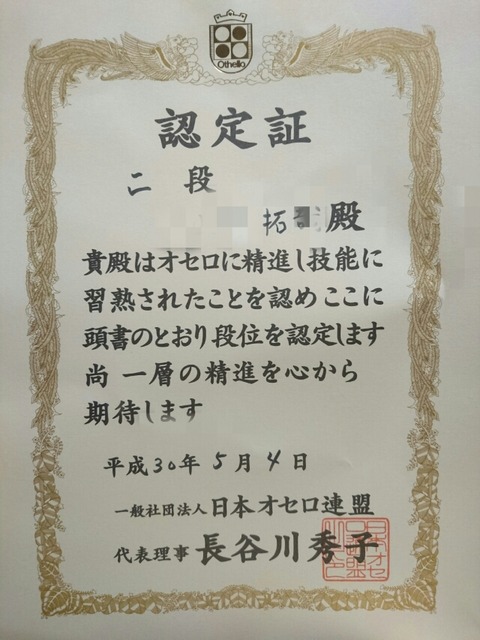 Othello
認定証
二段
拓 殿
貴殿はオセロに精進し技能に
習熟されたことを認めここに
頭書のとおり段位を認定します
尚 一層の精進を心から
期待します
平成30年5月4日
一般社団法人 日本オセロ連盟
代表理事 長谷川秀子